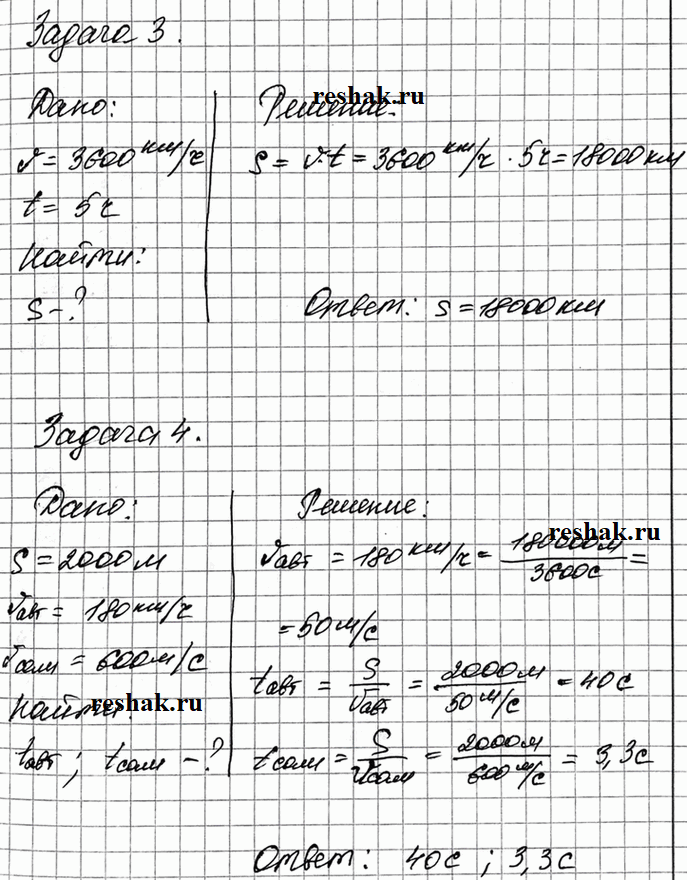 Задача 3.
Дано:
v = 3600 км/ч
t = 5 ч
Найти:
S - ?
Решение:
reshak.ru
S = v·t = 3600 км/ч · 5ч = 18000 км
Ответ: S = 18000 км
Задача 4.
Дано:
S = 2000 м
vавт = 180 км/ч
vсам = 600 м/с
Найти:
reshak.ru
tавт ; tсам - ?
Решение:
reshak.ru
vавт = 180 км/ч = 180000м / 3600с =
= 50 м/с
tавт = S / vавт = 2000м / 50 м/с = 40 с
tсам = S / vсам = 2000м / 600 м/с = 3,3с
Ответ: 40с ; 3,3с